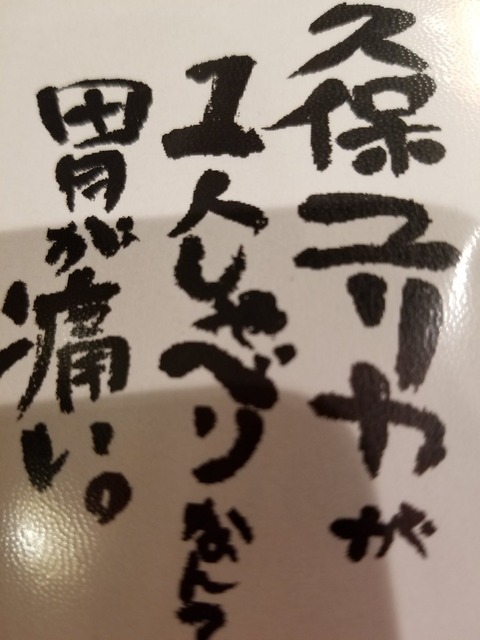 久保ユリカが
1人しゃべりなんて
胃が痛い。